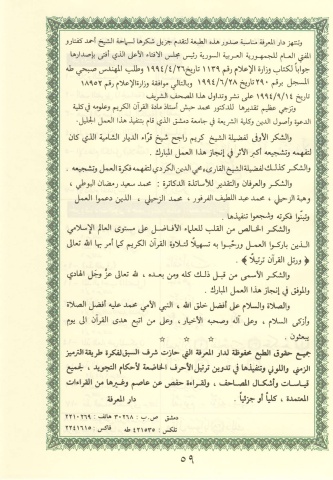 وتنتهز دار المعرفة مناسبة صدور هذه الطبعة لتقدم جزيل شكرها لسماحة الشيخ أحمد كفتارو
المفتي العام للجمهورية العربية السورية رئيس مجلس الافتاء الأعلى الذي أفتى بإصدارها
جواباً لكتاب وزارة الإعلام رقم ١١٣٩ تاريخ ١٩٩٤/٤/٢٦ وطلب المهندس صبحي طه
المسجل برقم ٢٩٠ تاريخ ١٩٩٤/٦/٢٨ وبالتالي موافقة وزارة الإعلام رقم ١٨٩٥٢
تاريخ ١٩٩٤/٩/١٤ على نشر وتداول هذا المصحف الشريف
وتزجي عظيم تقديرها للدكتور محمد حبش أستاذ مادة القرآن الكريم وعلومه في كلية
الدعوة وأصول الدين وكلية الشريعة في جامعة دمشق الذي قام بتنفيذ هذا العمل الجليل.
والشكر الأوفى لفضيلة الشيخ كريم راجح شيخ قرّاء الديار الشامية الذي كان
لتفهمه وتشجيعه أكبر الأثر في إنجاز هذا العمل المبارك.
والشكر كذلك لفضيلة الشيخ القارىء محيي الدين الكردي لتفهمه فكرة العمل وتشجيعه.
والشكر والعرفان والتقدير للأساتذة الدكاترة: محمد سعيد رمضان البوطي،
وهبة الزحيلي، محمد عبد اللطيف الفرفور، محمد الزحيلي، الذين دعموا العمل
وتبنوا فكرته وشجعوا تنفيذها.
والشكر الخالص من القلب للعلماء الأفاضل على مستوى العالم الإسلامي
الذين باركوا العمل ورحبوا به تسهيلاً لتلاوة القرآن الكريم كما أمر بها الله تعالى
﴿ ورتل القرآن ترتيلا ﴾.
والشكر الأسمى من قبل ذلك كله ومن بعده، لله تعالى عزّ وجَل الهادي
والموفق في إنجاز هذا العمل المبارك.
والصلاة والسلام على أفضل خلق الله، النبي الأمي محمد عليه أفضل الصلاة
وأزكى السلام، وعلى آله وصحبه الأخيار، وعلى من اتبع هدى القرآن الى يوم
يبعثون.
جميع حقوق الطبع محفوظة لدار المعرفة التي حازت شرف السبق لفكرة طريقة الترميز
الزمني واللوني وتنفيذها في تدوين ترتيل الأحرف الخاضعة لأحكام التجويد، لجميع
قياسات وأشكال المصاحف، ولقراءة حفص عن عاصم وغيرها من القراءات
المعتمدة، كلياً أو جزئياً.
دار المعرفة
دمشق ص.ب: ٣٠٢٦٨ هاتف: ٢٢١٠٢٦٩
تلكس: ٤٢١٥٣٥ طه فاكس: ٢٢٤١٦١٥
٥٩